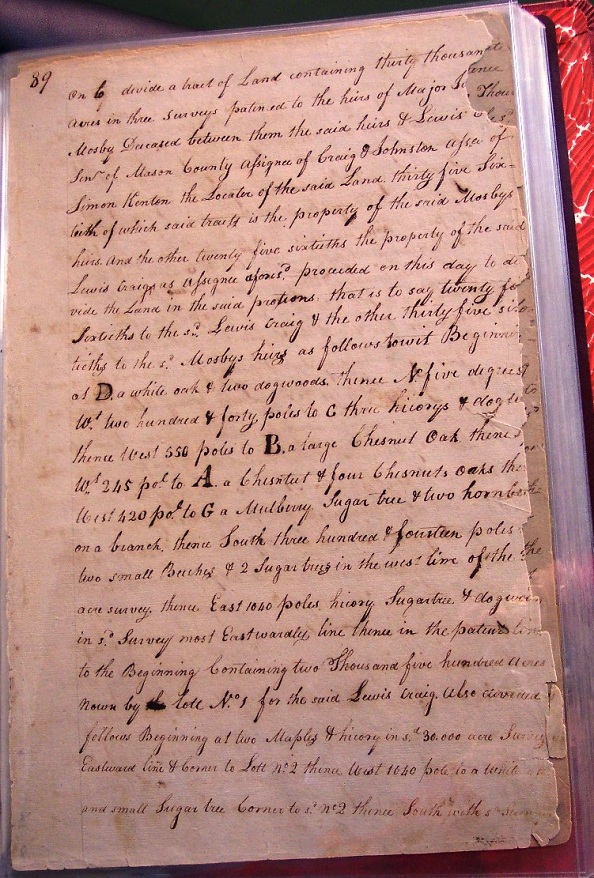 89
on 6 divide a tract of Land containing thirty thousand
acres in three surveys patened to the heirs of Major
Mosby Deceased between them the said heirs & Lewis
Senr. of Mason County assignee of Craig & Johnston assee of
Simon Kenton the Locater of the said Land. thirty five Six-
tieth of which said tracts is the property of the said Mosbys
heirs. And the other twenty five sixtieths the property of the said
Lewis Craig as assignee aforesd. proceeded on this day to di
vide the Land in the said protions. that is to say twenty
Sixtieths to the sd. Lewis Craig & the other thirty five six
tieths to the sd. Mosbys heirs as follows towit Beginning
at D. a white oak & two dogwoods. thence No. five degrees
Wt. two hundred & forty poles to C three hicorys &
thence West 550 poles to B. a large Chesnut Oak thence
Wt. 245 pos. to A. a Chesntut & four Chesnuts oaks
West 420 pos. to G a Mulberry Sugar tree & two
on a branch. thence South three hundred & fourteen poles
two small Beiches & 2 Sugar trees in the west line of the
acre survey. thence East 1040 poles, hicory Sugartree & dogwood
in sd. Survey most Eastwardly line thence in the patent line
to the Beginning Containing two Thousand five hundred acres
nown by Lott No. 1 for the said Lewis Craig. Also divided
follows Beginning at two Maples & hicory in sd. 30.000 acre Survey
Eastward line & Corner to Lott no 2 thence West 1040 poles to a White
and small Sugar tree Corner to sd. no 2 thence South with sd.